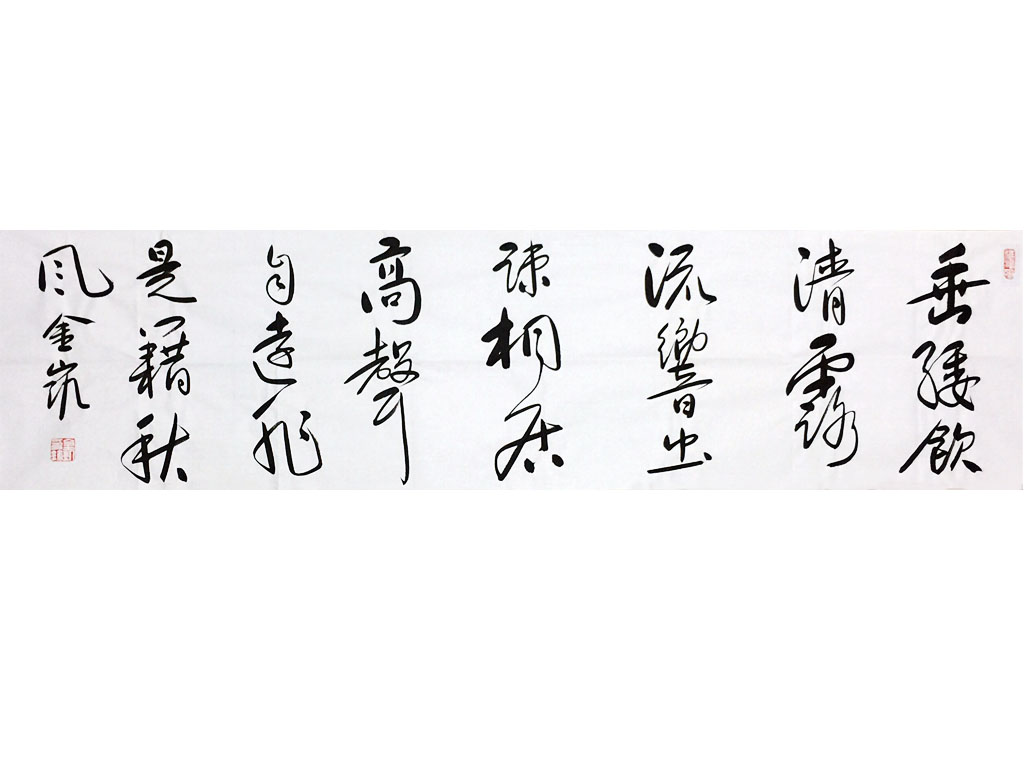 垂緌飲
清露
流響出
疎桐居
高聲
自遠非
是藉秋
風金